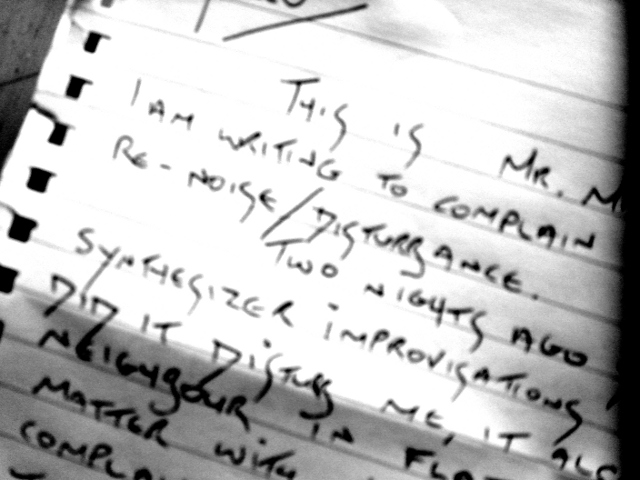 THIS IS MR. M
I AM WRITING TO COMPLAIN
RE-NOISE/DISTURBANCE.
TWO NIGHTS AGO
SYNTHESIZER IMPROVISATIONS
DID IT DISTURB ME, IT ALSO
NEIGHBOUR IN FLAT
MATTER WITH